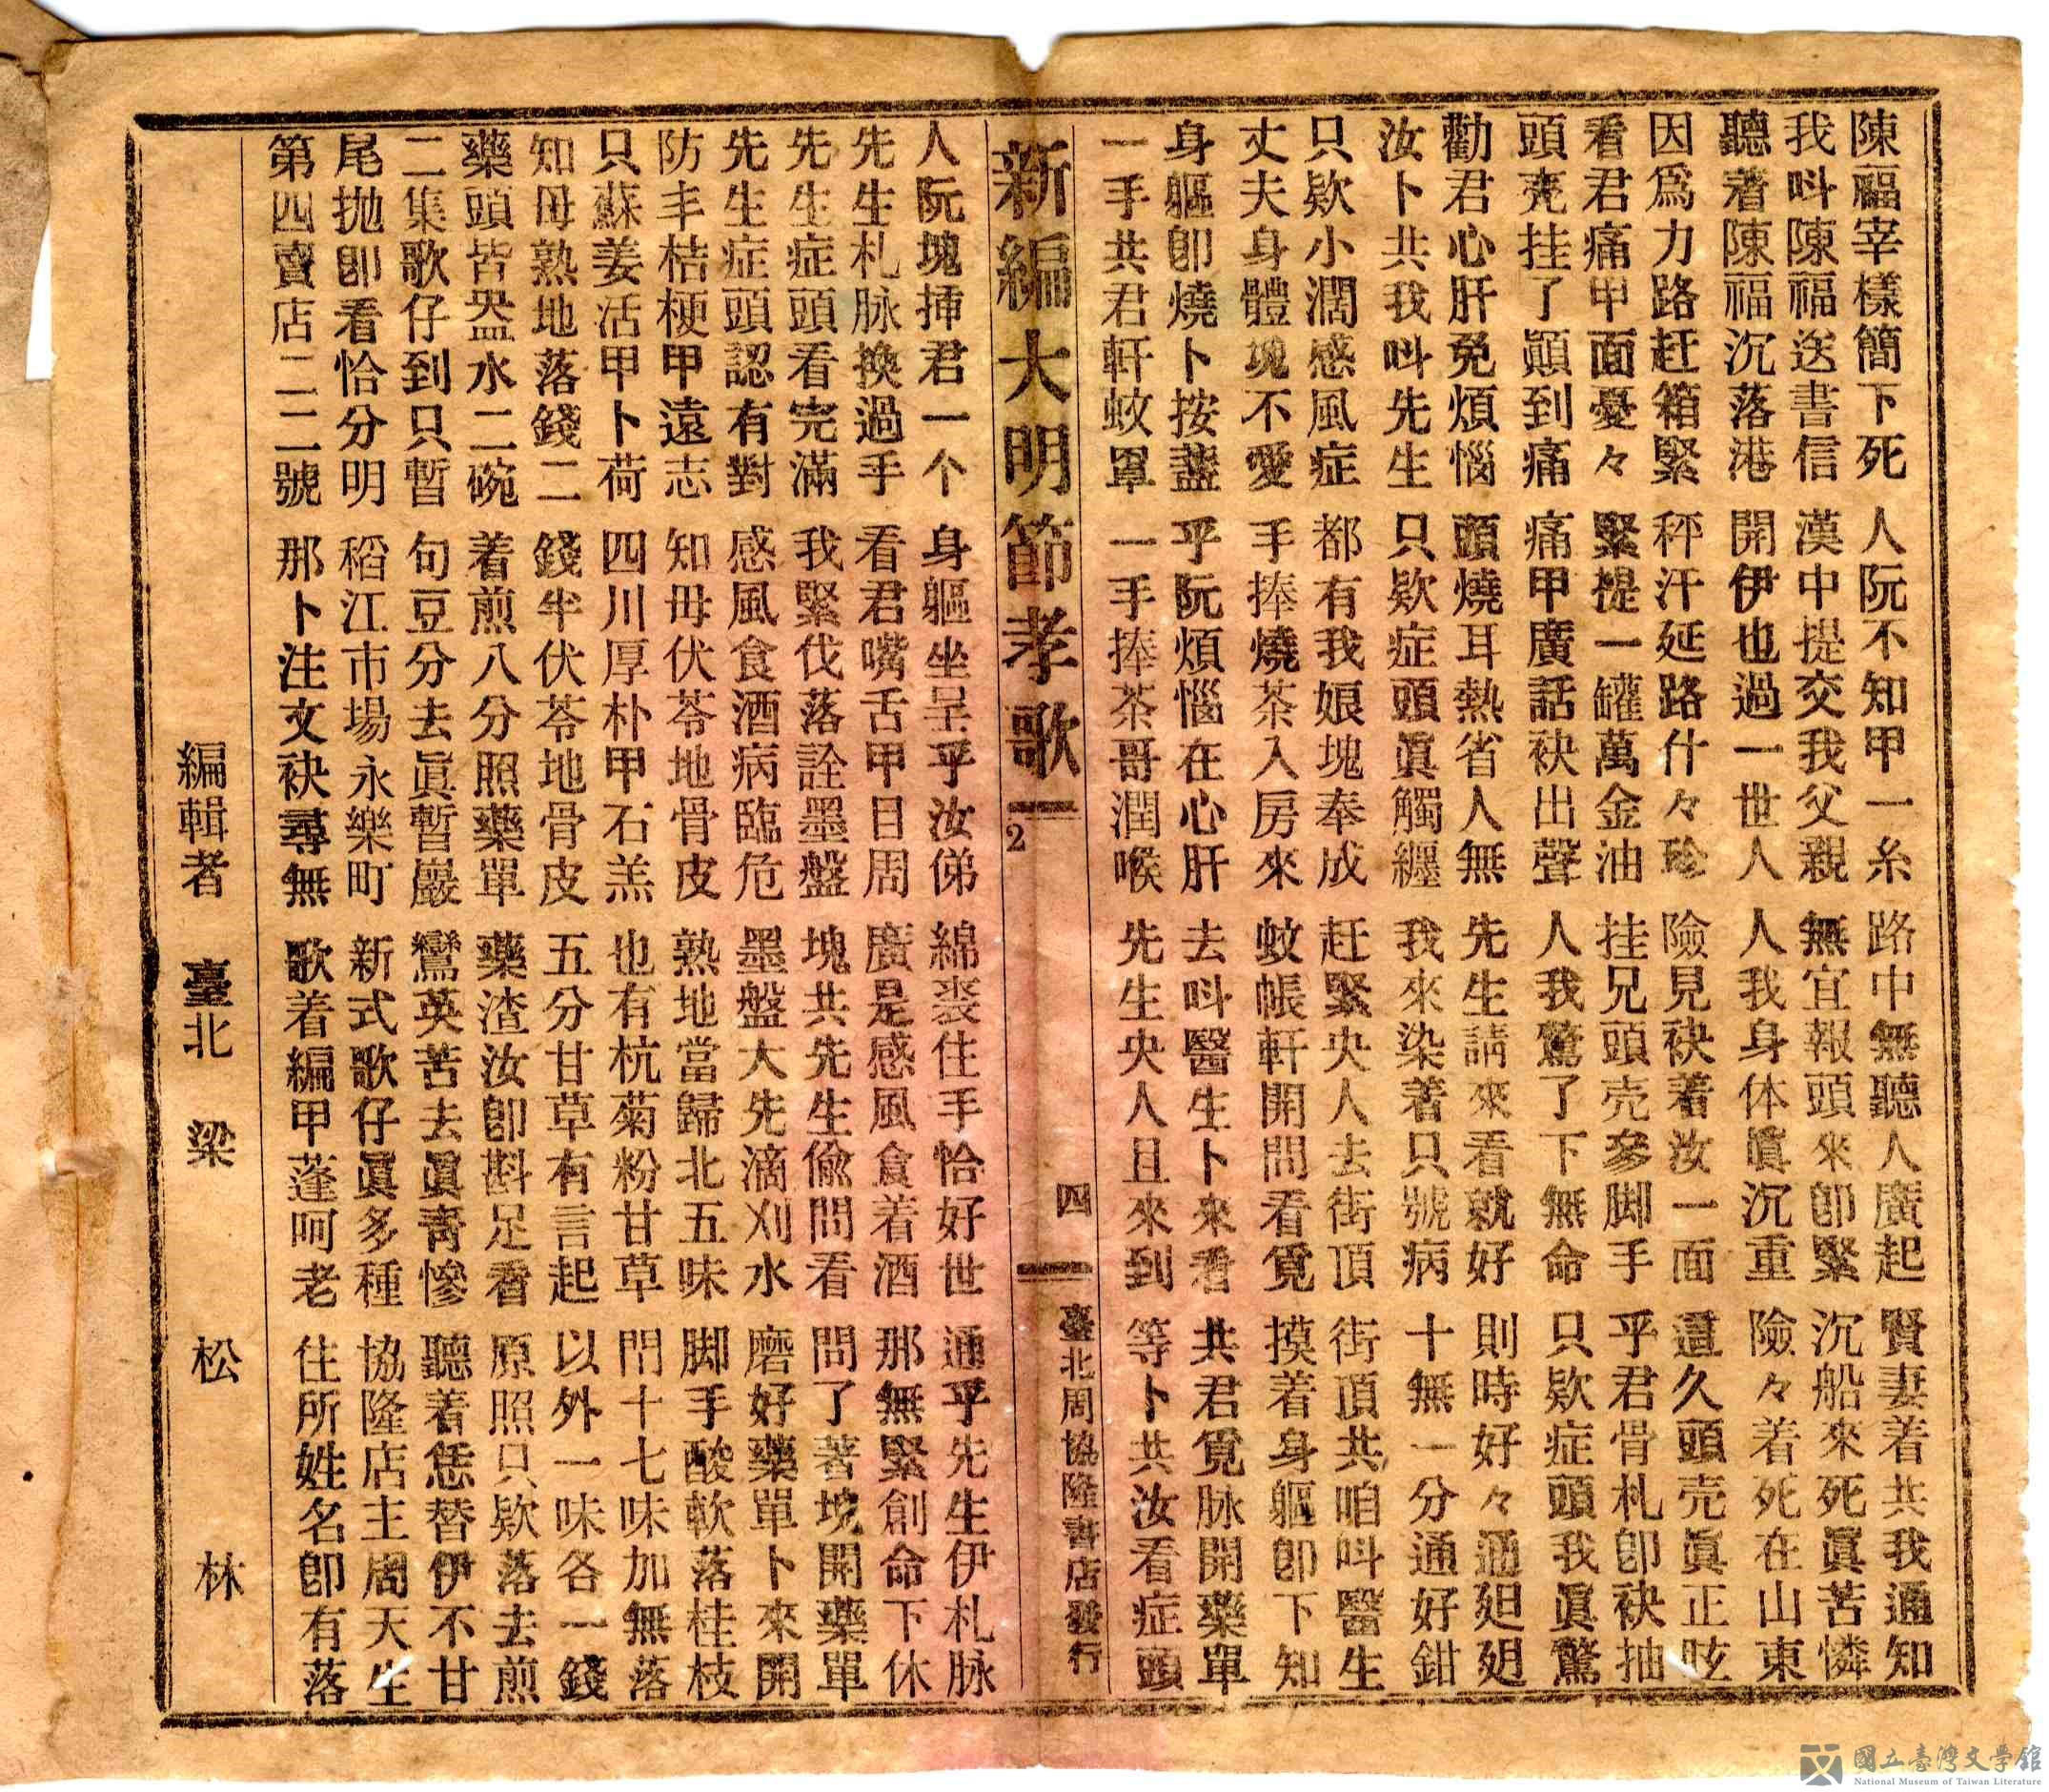 陳福宰樣簡下死 人阮不知甲一糸 路中無聽人廣起 賢妻着共我通知
我呌陳福送書信 漢中提交我父親 無宜報頭來卽緊 沉船來死眞苦憐
聽着陳福沉落港 開伊也過一世人 人我身体眞沉重 險々着死在山東
因爲力路赶箱緊 秤汗延路什々珍 險見袂着汝一面 這久頭壳眞正呟
看君痛甲面憂々 緊提一罐萬金油 挂兄頭壳參脚手 乎君骨札卽袂抽
頭壳挂了顚到痛 痛甲廣話袂出聲 人我驚了下無命 只欵症頭我眞驚
勸君心肝免煩惱 頭燒耳熱省人無 先生請來看就好 則時好々通廻廻
汝卜共我呌先生 只欵症頭眞觸纏 我來染着只號病 十無一分通好鉗
只欵小濶感風症 都有我娘塊奉成 赶緊央人去街頂 街頂共咱呌醫生
丈夫身體塊不愛 手捧燒茶入房來 蚊帳軒開問看覓 摸着身軀卽下知
身軀卽燒卜按盞 乎阮煩惱在心肝 去呌醫生卜來看 共君覓脉開藥單
一手共君軒蚊罩 一手捧茶哥潤喉 先生央人且來到 等卜共汝看症頭
新編大明節孝歌 2 四 臺北周協隆書店發行
人阮塊揷君一个 身軀坐呈乎汝俤 綿裘住手恰好世 通乎先生伊札脉
先生札脉換過手 看君嘴舌甲目周 廣是感風食着酒 那無緊創命下休
先生症頭看完滿 我緊伐落詮墨盤 塊共先生偸問看 問了著塊開藥單
先生症頭認有對 感風食酒病臨危 墨盤大先滴刈水 磨好藥單卜來開
防丰桔梗甲遠志 知母伏苓地骨皮 熟地當歸北五味 脚手酸軟落桂枝
只蘇姜活甲卜荷 四川厚朴甲石羔 也有杭菊粉甘草 閂十七味加無落
知母熟地落錢二 錢半伏苓地骨皮 五分甘草有言起 以外一味各一錢
藥頭皆盎水二碗 着煎八分照藥單 藥渣汝卽斟足看 原照只欵落去煎
二集歌仔到只暫 句豆分去眞暫嚴 鸞英苦去眞青慘 聽着恁替伊不甘
尾拋卽看恰分明 稻江市場永樂町 新式歌仔眞多種 協隆店主周天生
第四賣店二二號 那卜注文袂尋無 歌着編甲蓬呵老 住所姓名卽有落
編輯者 臺北 梁 松 林
國立臺灣文學館
National Museum of Taiwan Literature